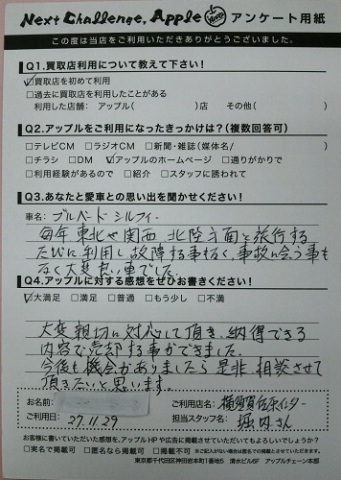 Next Challenge, Apple アンケート用紙
この度は当店をご利用いただきありがとうございました。
Q1.買取店利用について教えて下さい!
☑買取店を初めて利用
□過去に買取店を利用したことがある
利用した店舗: アップル( )店 その他( )
Q2.アップルをご利用になったきっかけは?(複数回答可)
□テレビCM □ラジオCM □新聞・雑誌(媒体名/ )
□チラシ □DM ☑アップルのホームページ □通りがかりで
□利用経験があるので □紹介 □スタッフに誘われて
Q3.あなたと愛車との思い出を聞かせください!
車名: ブルーバード シルフィー
毎年東北や関西、北陸方面を旅行する
たびに利用し故障する事もなく、事故に会う事も
なく大変良い車でした。
Q4.アップルに対する感想をぜひお書きください!
☑大満足 □満足 □普通 □もう少し □不満
大変親切に対応して頂き、納得できる
内容で売却する事ができました。
今後も機会がありましたら是非、相談させて
頂きたいと思います。
お名前:
ご利用日: 27.11.29
ご利用店名: 横須賀佐原インター
担当スタッフ名: 堀内さん
お客様に書いていただいた感想を、アップルHPや広告に掲載させていただいてもよろしいでしょうか?
□実名で掲載可 □匿名なら掲載可 □不可 ※ご記入がない場合は匿名での掲載とさせていただきます。
東京都千代田区神田岩本町1番地5 清水ビル6F アップルチェーン本部